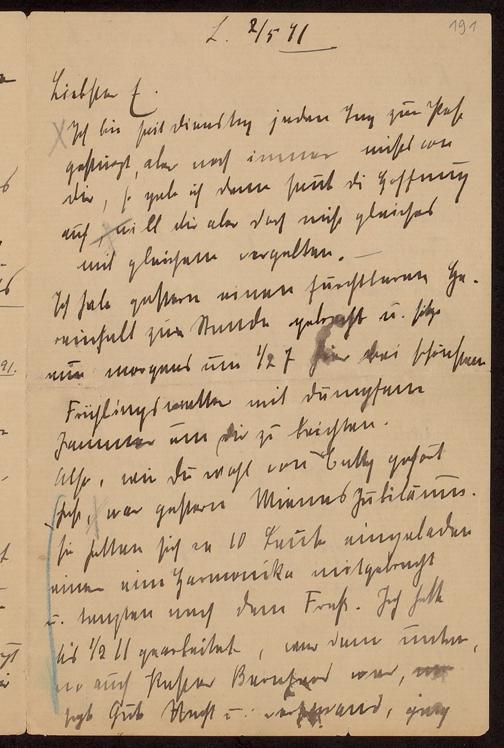 191
L. 2/5 91
Liebster E.
Ich bin seit dienstag jeden Tag zur Post
gestürzt, aber noch immer nichts von
dir, so gebe ich denn heut di Hoffnung
auf, will dir aber doch nicht gleiches
mit gleichem vergelten. –
Ich habe gestern einen furchtbaren
zur Stunde gebracht u. sitze
nun morgens um 1/2 7 hier bei schönstem
Frühlingswetter mit dumpfem
Jammer um dir zu beichten.
Also, wie du wohl von Catty gehört
hast, war gestern Minnas Jubiläum.
Sie hatten sich so 10 Leute eingeladen
einer eine Harmonika mitgebracht
u. tanzten nach dem Fraß. Ich hatte
bis 1/2 11 gearbeitet, war dann unten,
wo auch Pastor war,
sagt Gute Nacht u. verschwand, ging